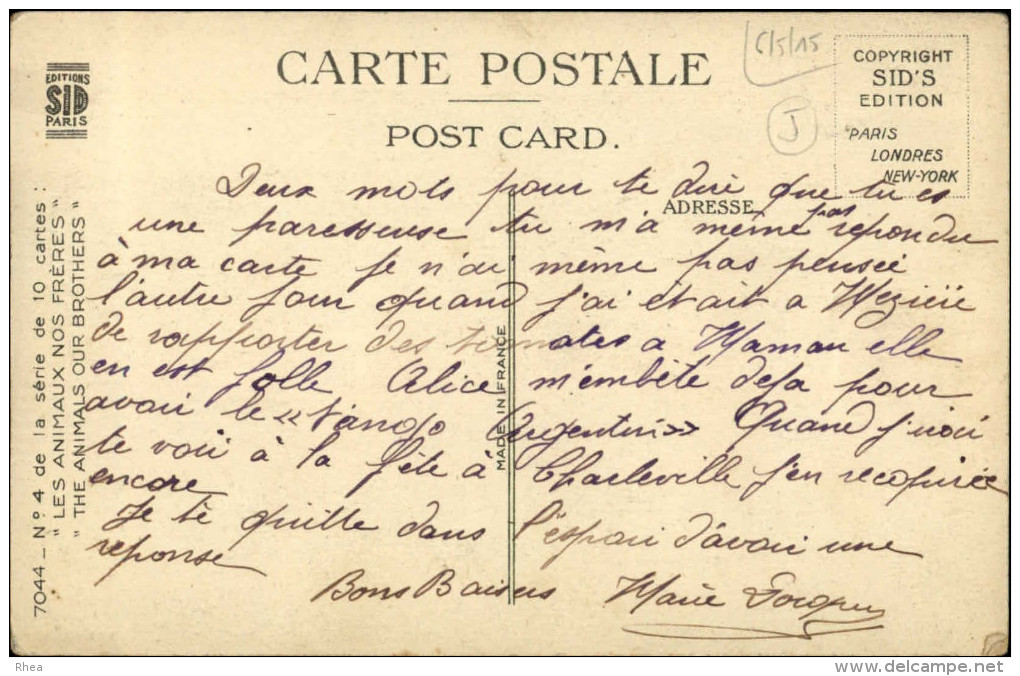 EDITIONS
SID
PARIS
CARTE POSTALE
POST CARD.
COPYRIGHT
SID'S
EDITION
PARIS
LONDRES
NEW-YORK
J
ADRESSE
MADE IN FRANCE
7044 _ Nº 4 de la série de 10 cartes :
" LES ANIMAUX NOS FRÈRES "
" THE ANIMALS OUR BROTHERS "
Deux mots pour te dire que tu es
une paresseuse tu m'a même pas repondu
à ma carte je n'ai même pas pensée
l'autre jour quand j'ai était a
de rapporter des tomates a Maman elle
en est folle Alice m'embête deja pour
avoir le « Tango Argentin » Quand j'irai
te voir à la fête à Charleville j'en recopierée
encore
Je te quitte dans l'espoir d'avoir une
reponse
Bons Baisers Marie
Rhea
delcampe.net